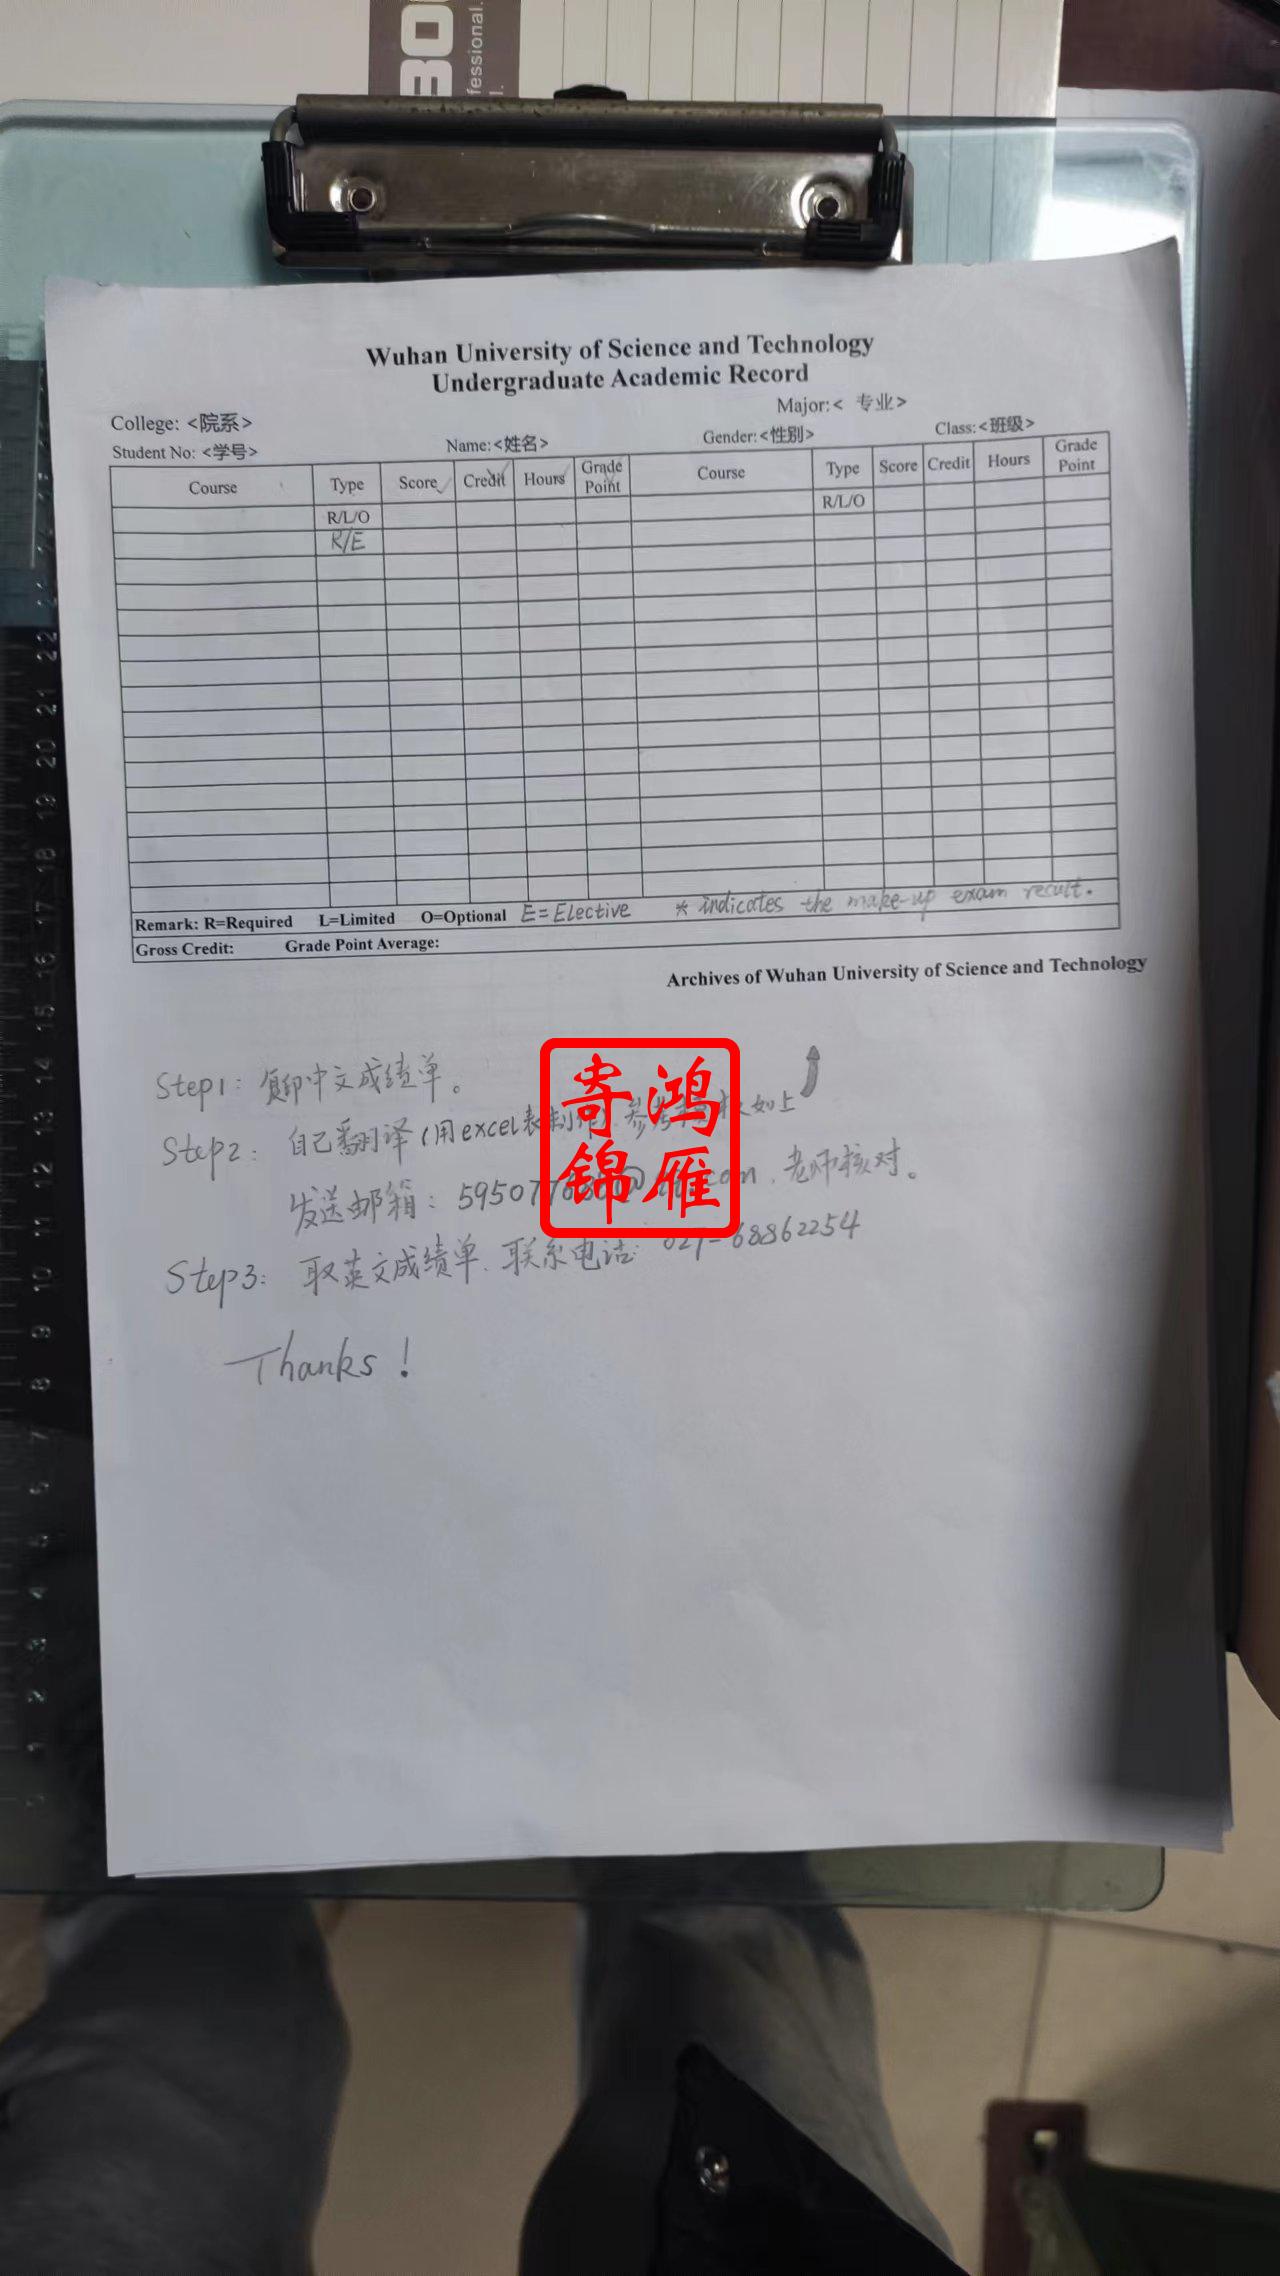 BO
fessional.
l.
Wuhan University of Science and Technology
Undergraduate Academic Record
College: <院系> Major:< 专业>
Student No: <学号> Name:<姓名> Gender:<性别> Class:<班级>
Course Type Score Credit Hours Grade Point Course Type Score Credit Hours Grade Point
R/L/O R/L/O
R/E
Remark: R=Required L=Limited O=Optional E=Elective * indicates the make-up exam result.
Gross Credit: Grade Point Average:
Archives of Wuhan University of Science and Technology
Step1: 复印中文成绩单。
Step2: 自己翻译(用excel表制作) 参考模板如上
发送邮箱: 59507 .com, 老师核对。
Step3: 取英文成绩单. 联系电话: 027-68862254
Thanks!
寄鸿
锦雁
22
21
20
19
18
17
16
15
14
13
12
11
10
9
8
7
6
5
4
3
2
1